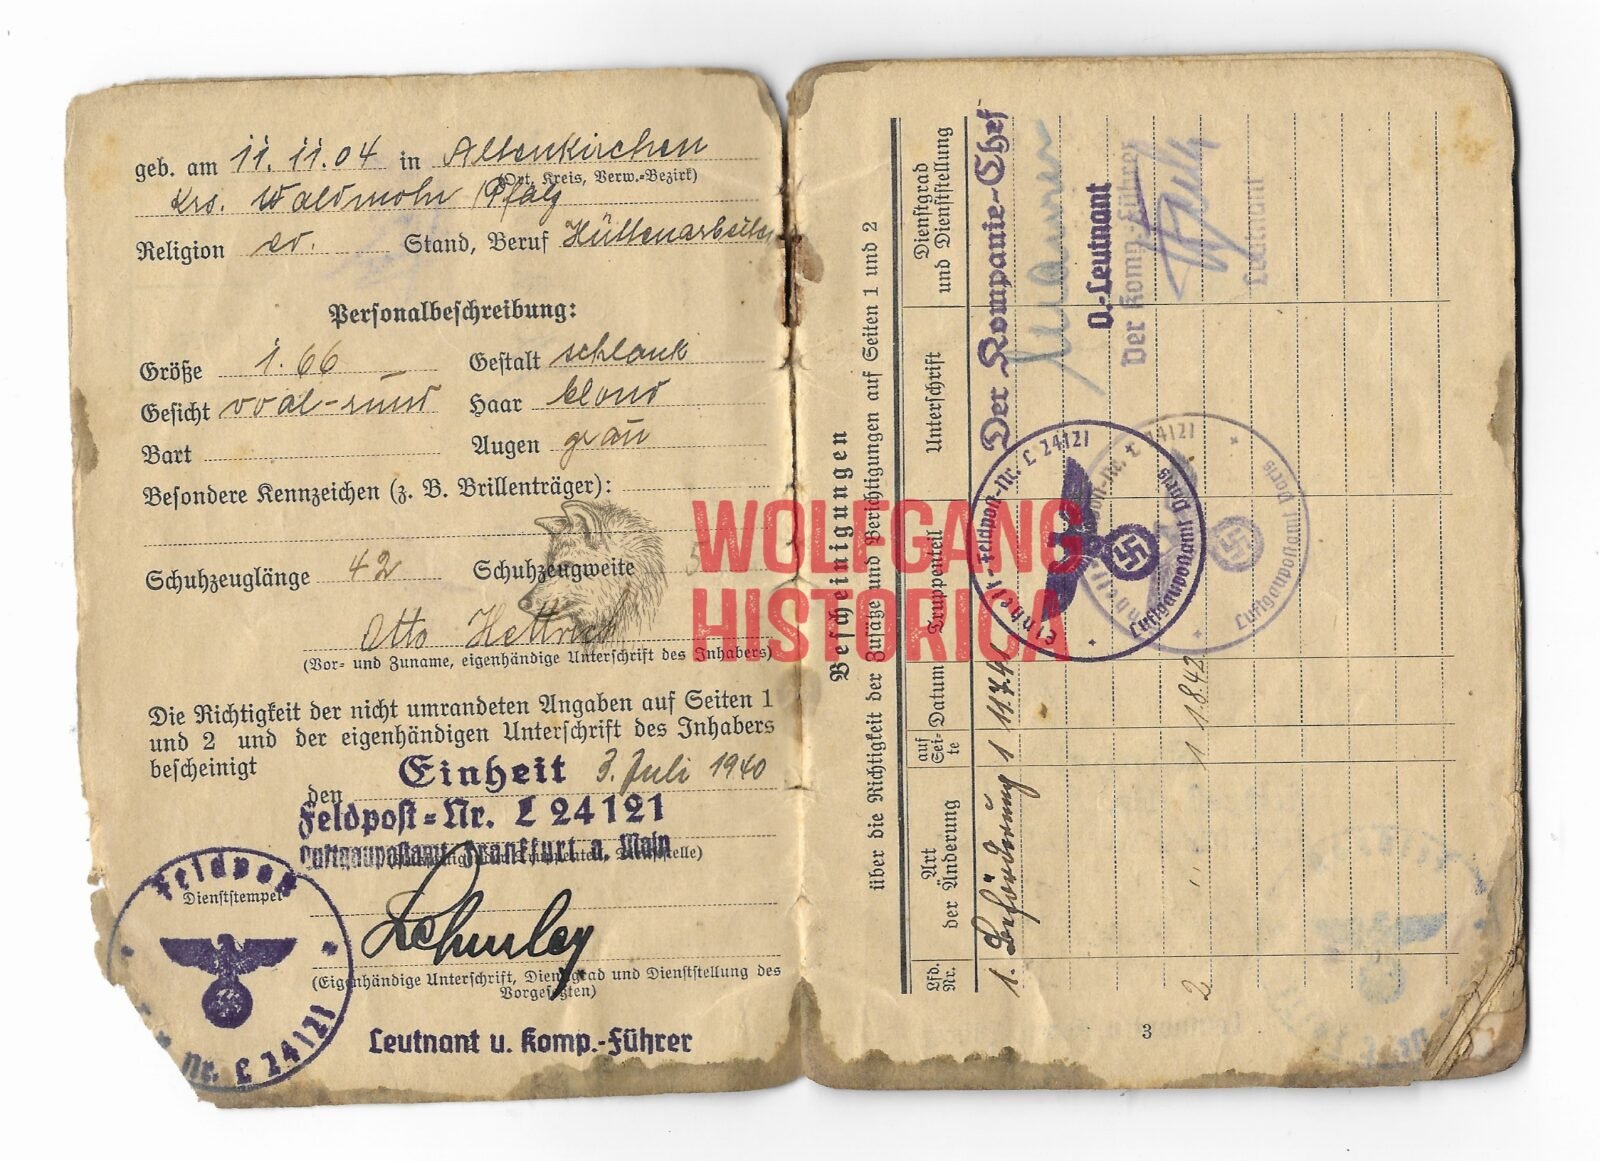 geb. am 11.11.04 in Altenkirchen
(Ort, Kreis, Verw.-Bezirk)
Krs. Waldmohr Pfalz
Religion ev. Stand, Beruf Hüttenarbeiter
Personalbeschreibung:
Größe 1.66 Gestalt schlank
Gesicht oval-rund Haar blond
Bart Augen grau
Besondere Kennzeichen (z. B. Brillenträger):
Schuhzeuglänge 42 Schuhzeugweite 5
Otto Hettrich
(Vor- und Zuname, eigenhändige Unterschrift des Inhabers)
Die Richtigkeit der nicht umrandeten Angaben auf Seiten 1
und 2 und der eigenhändigen Unterschrift des Inhabers
bescheinigt
den Einheit 3. Juli 1940
Feldpost-Nr. L 24121
Luftgaupostamt Frankfurt a. Main
Feldpost
Dienststempel
Nr. L 24121
(Eigenhändige Unterschrift, Dienstgrad und Dienststellung des
Vorgesetzten)
Leutnant u. Komp.-Führer
WOLFGANG
HISTORICA
Bescheinigungen
über die Richtigkeit der Zusätze und Berichtigungen auf Seiten 1 und 2
Lfd. Nr.
Art der Änderung
auf Sei- te
Datum
Truppenteil
Unterschrift
Dienstgrad und Dienststellung
1. Beförderung 1 11.7.41 Der Kompanie-Chef
O.-Leutnant
2 1 1.8.42 Der Komp.-Führer
Leutnant
Einheit - Feldpost-Nr. L 24121
Luftgaupostamt Paris
Einheit - Feldpost-Nr. L 24121
Luftgaupostamt Paris
3